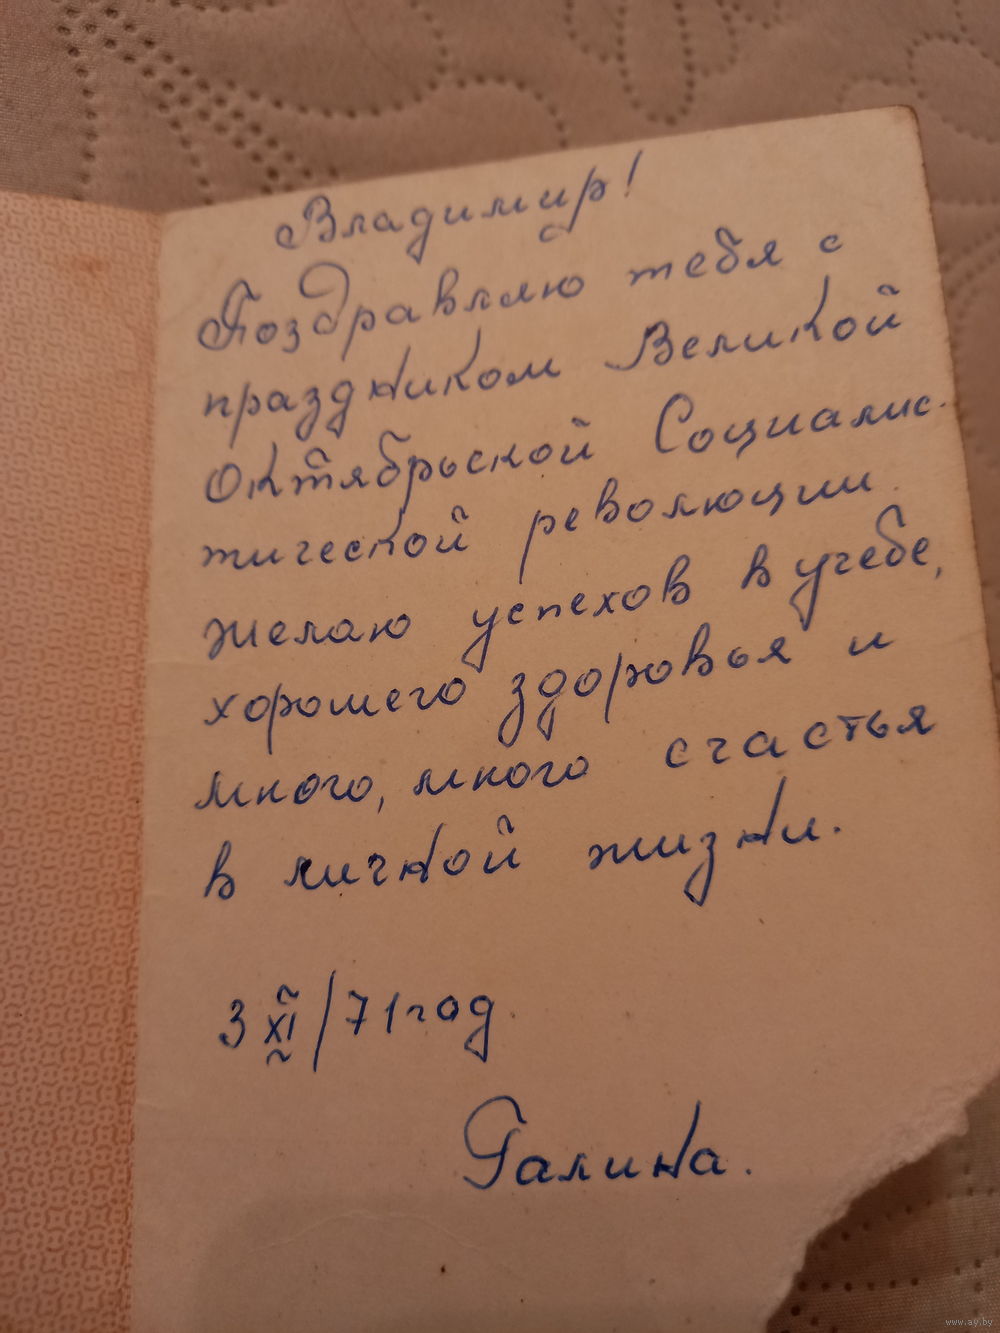 Владимир!
Поздравляю тебя с
праздником Великой
Октябрьской Социалис-
тической революции.
желаю успехов в учебе,
хорошего здоровья и
много, много счастья
в личной жизни.
3 XI/71 год.
Галина.
www.ay.by